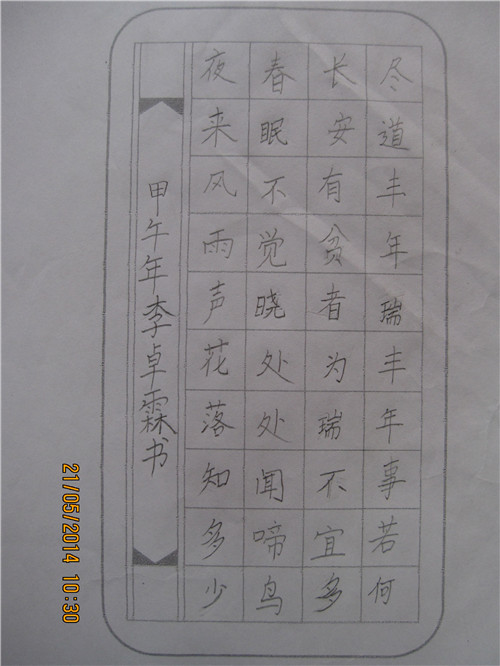 尽道丰年瑞丰年事若何
长安有贫者为瑞不宜多
春眠不觉晓处处闻啼鸟
夜来风雨声花落知多少
甲午年李卓霖书
21/05/2014 10:30